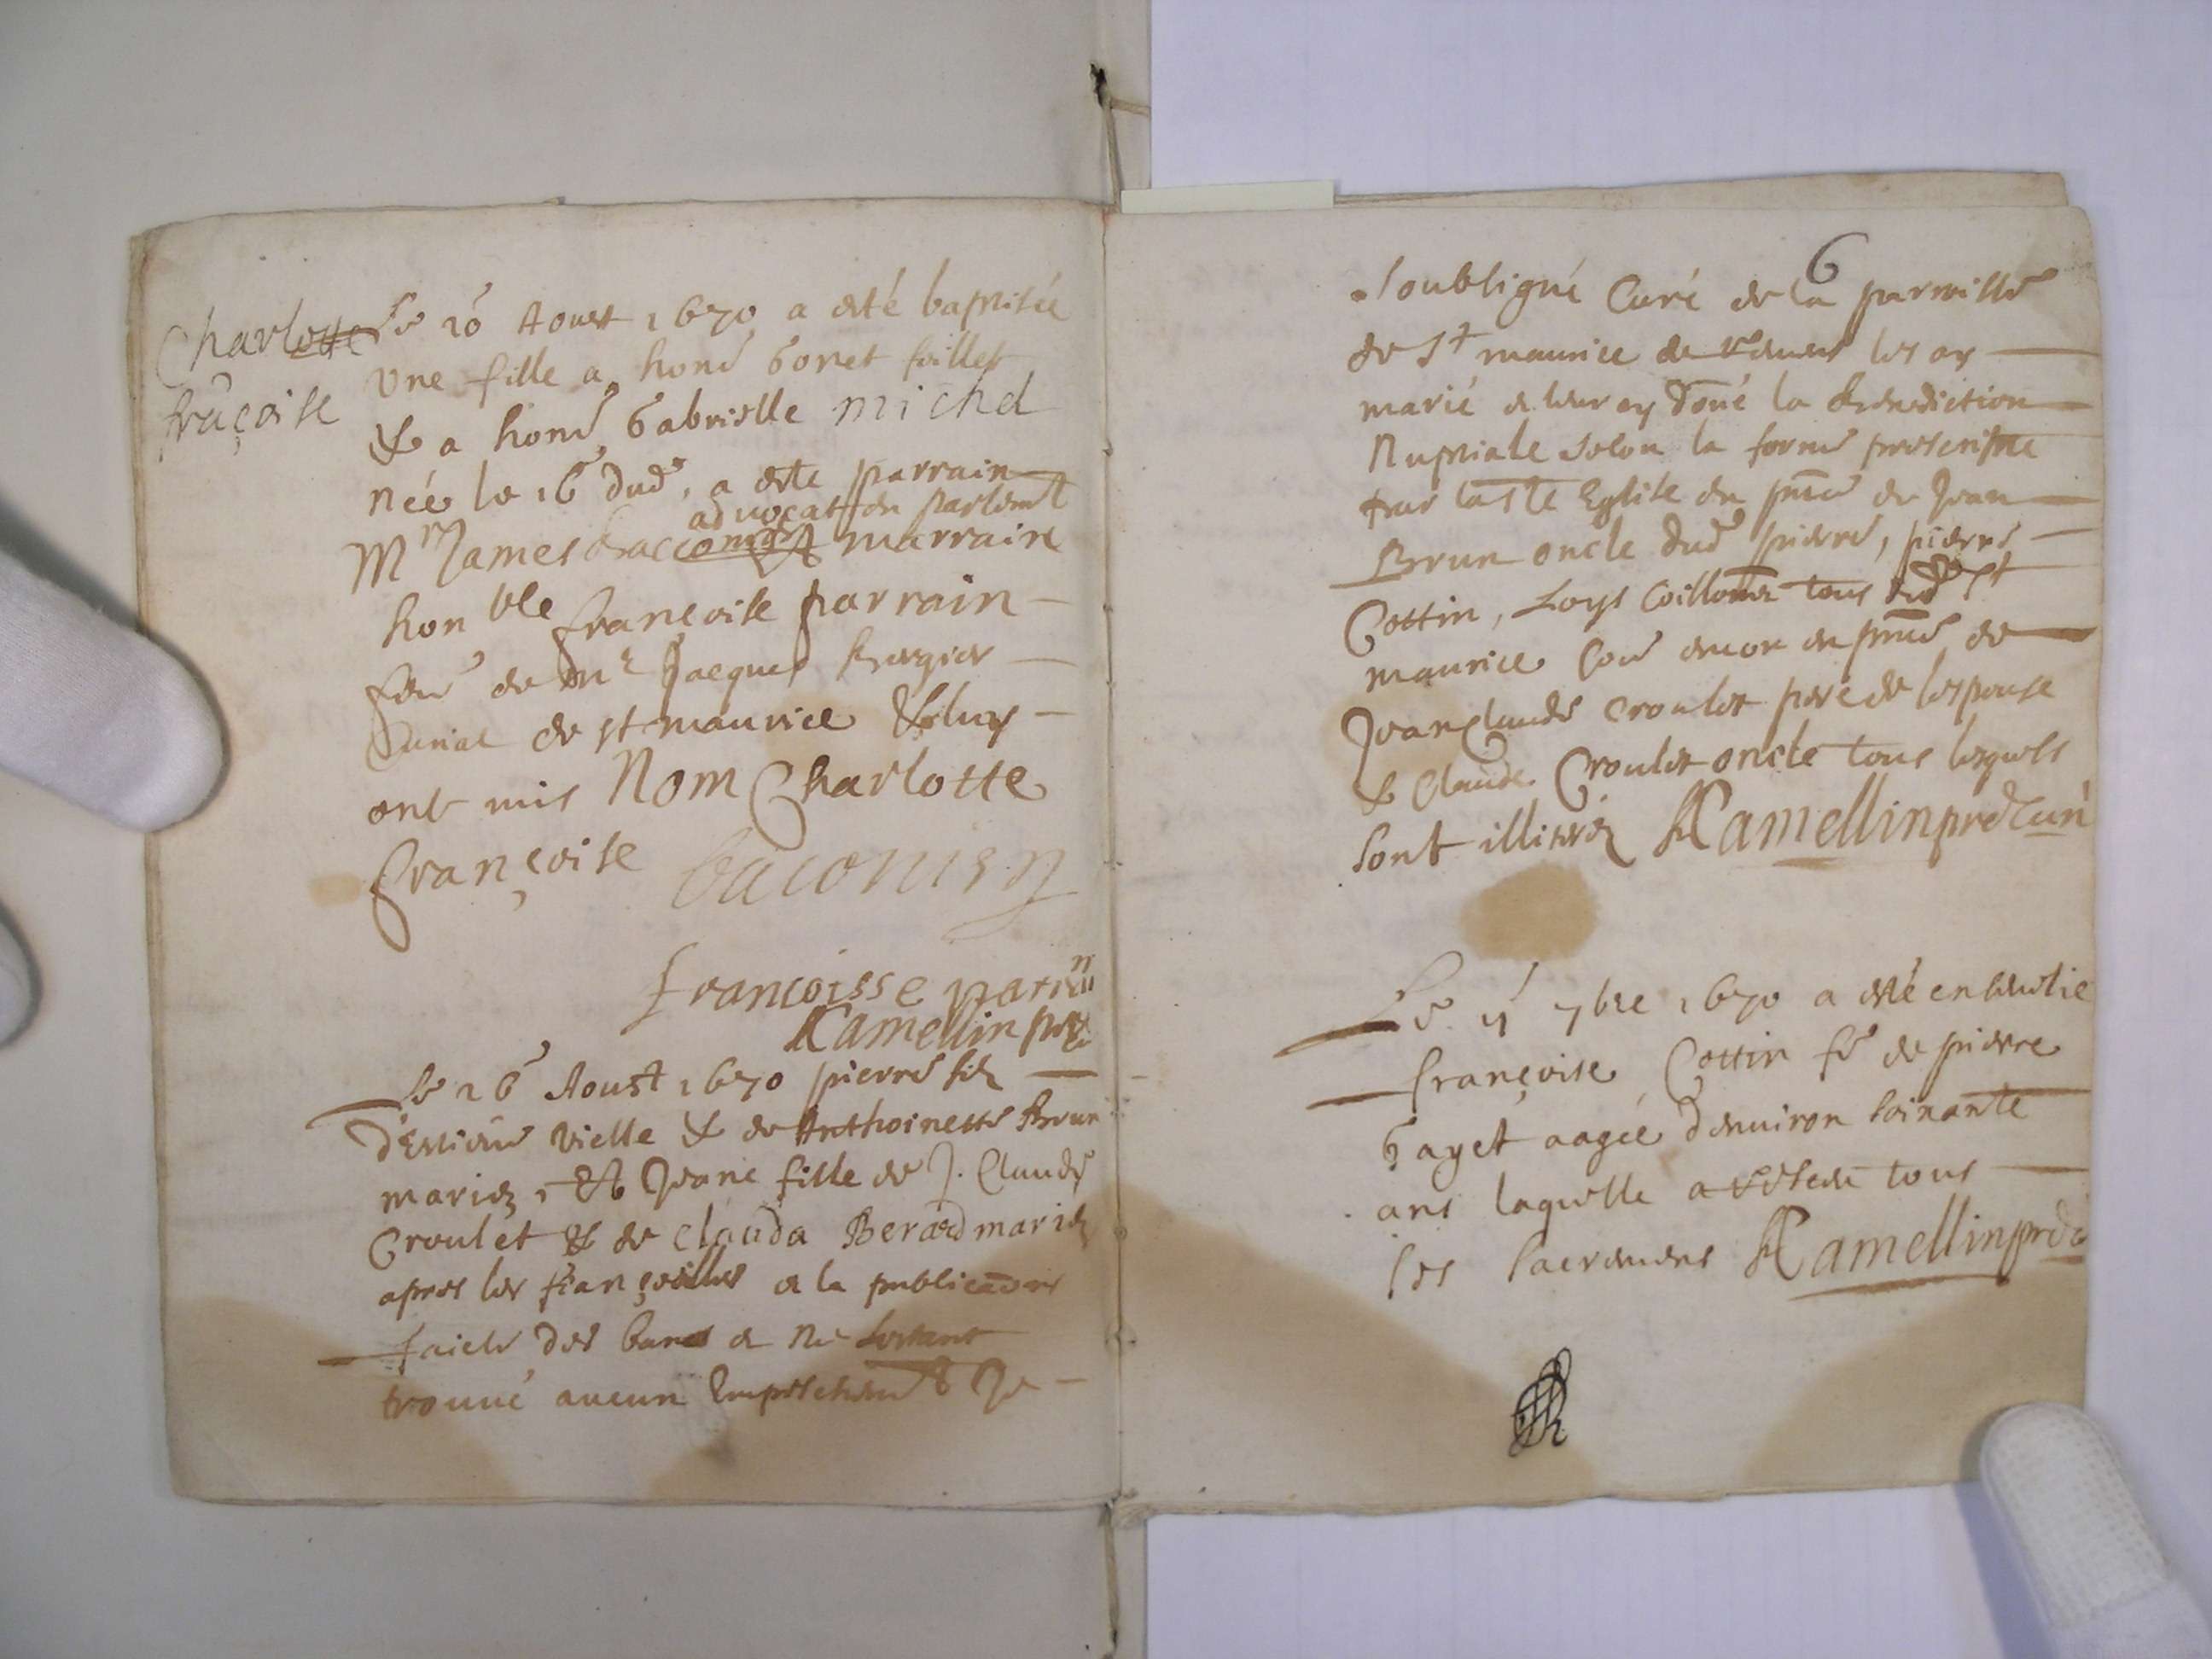 Charlotte
frãçoise
Le 20 Aoust 1670 a esté baptisée
Une fille a hone Gonet
& a hone Gabrielle michel
née le 16 dud, a este parrain
advocat en parlemt
Mr James marraine
honble françoise parrain
de Mr Jacques
de st maurice
ont mis Nom Charlotte
françoise baconien
francoisse parrin
Kamellin
Le 26 Aoust 1670 pierre filz
d'Estiene vielle & de Anthoinette Brun
mariez, & Jeane fille de J. Claude
Croulet & de clauda Berard mariez
apres les fiançailles & la publicaõn
faicte des bans & ne sestant
trouvé aucun Empeschemt Je
6
soubsigné Curé de la parroisse
de St maurice de les ay
marié & leur ay doñé la benediction
Nuptiale selon la forme prescripte
par la Ste Eglise en pñce de Jean
Brun oncle dud pierre, pierre
Cottin, Loys tous dud St
maurice en pñce de
Jean Claude Croulet pere de lespouse
& Claude Croulet oncle tous lesquels
sont illiterez Kamellin pre Curé
Le 7bre 1670 a esté ensevelie
françoise Cottin fe de pierre
Gayet aagée denviron soixante
ans laquelle a tous
les sacremens Kamellin pre